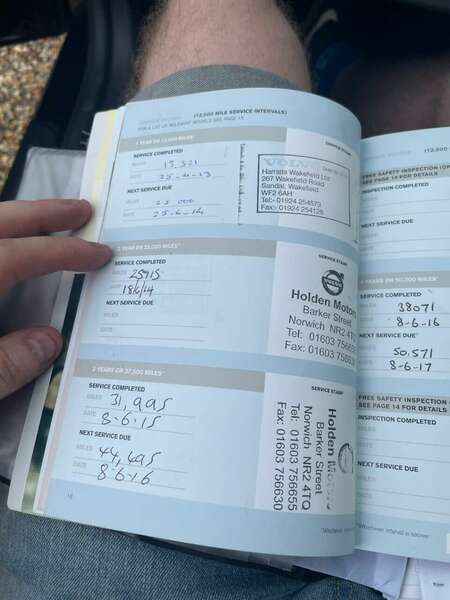 (12,500 MILE SERVICE INTERVALS)
FOR A LIST OF RELEVANT MODELS SEE PAGE 15
1 YEAR OR 12,500 MILES*
SERVICE COMPLETED
MILES 13,521
DATE 25-6-13
NEXT SERVICE DUE
MILES 25 000
DATE 25-6-14
SERVICE STAMP
VOLVO
Harratts Wakefield Ltd
267 Wakefield Road
Sandal, Wakefield
WF2 6AH
Tel:- 01924 254573
Fax:- 01924 254128
2 YEARS OR 25,000 MILES*
SERVICE COMPLETED
MILES 25915
DATE 18/6/14
NEXT SERVICE DUE
MILES
DATE
SERVICE STAMP
VOLVO
Holden Motors
Barker Street
Norwich NR2 4TQ
Tel: 01603 756655
Fax: 01603 756630
3 YEARS OR 37,500 MILES*
SERVICE COMPLETED
MILES 31,995
DATE 8-6-15
NEXT SERVICE DUE
MILES 44,495
DATE 8-6-16
SERVICE STAMP
Holden Motors
Barker Street
Norwich NR2 4TQ
Tel: 01603 756655
Fax: 01603 756630
16
*Whichever interval is sooner
(12,500
FREE SAFETY INSPECTION (OP
SEE PAGE 14 FOR DETAILS
INSPECTION COMPLETED
NEXT SERVICE DUE
4 YEARS OR 50,000 MILES*
SERVICE COMPLETED
MILES 38071
8-6-16
NEXT SERVICE DUE
50,571
8-6-17
FREE SAFETY INSPECTION
SEE PAGE 14 FOR DETAILS
INSPECTION COMPLETED
NEXT SERVICE DUE
*Whichever interval is sooner